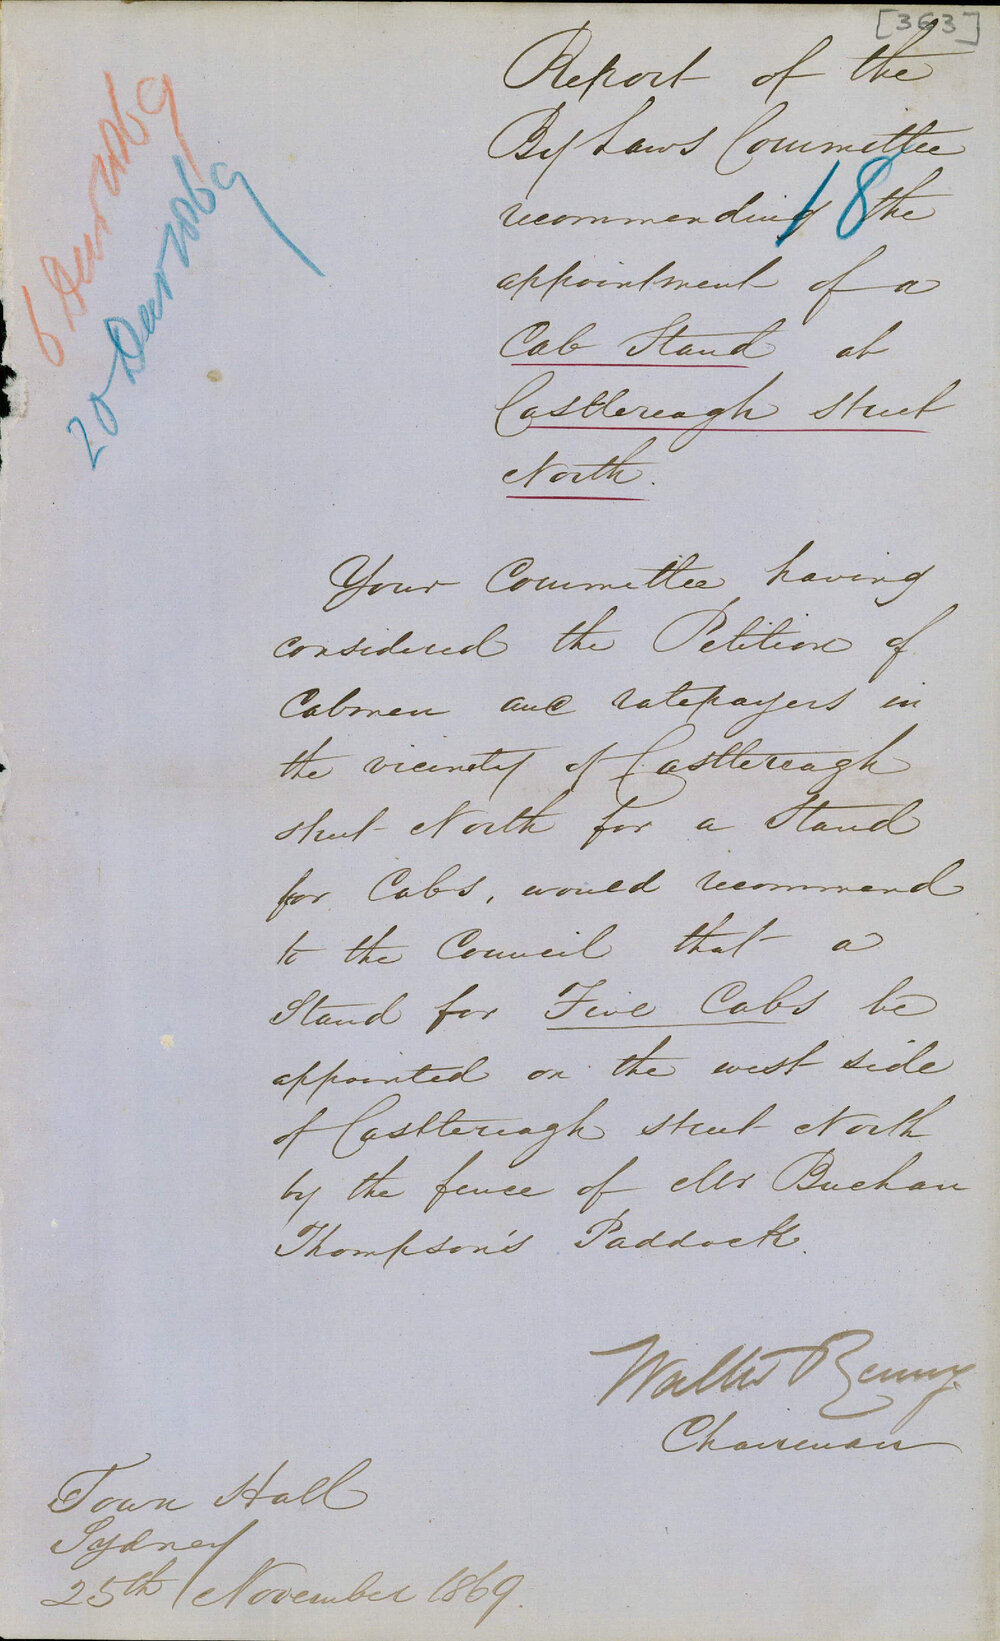 [363]
6 Decr 1869
20 Decr 1869
18
Report of the
By Laws Committee
recommending the
appointment of a
Cab Stand at
Castlereagh street
North.
Your Committee having
considered the Petition of
Cabmen and ratepayers in
the vicinity of Castlereagh
street North for a Stand
for Cabs, would recommend
to the Council that a
Stand for Five Cabs be
appointed on the west side
of Castlereagh street North
by the fence of Mr Buchan
Thompson's Paddock.
Walter Renny
Chairman
Town Hall
Sydney
25th November 1869.